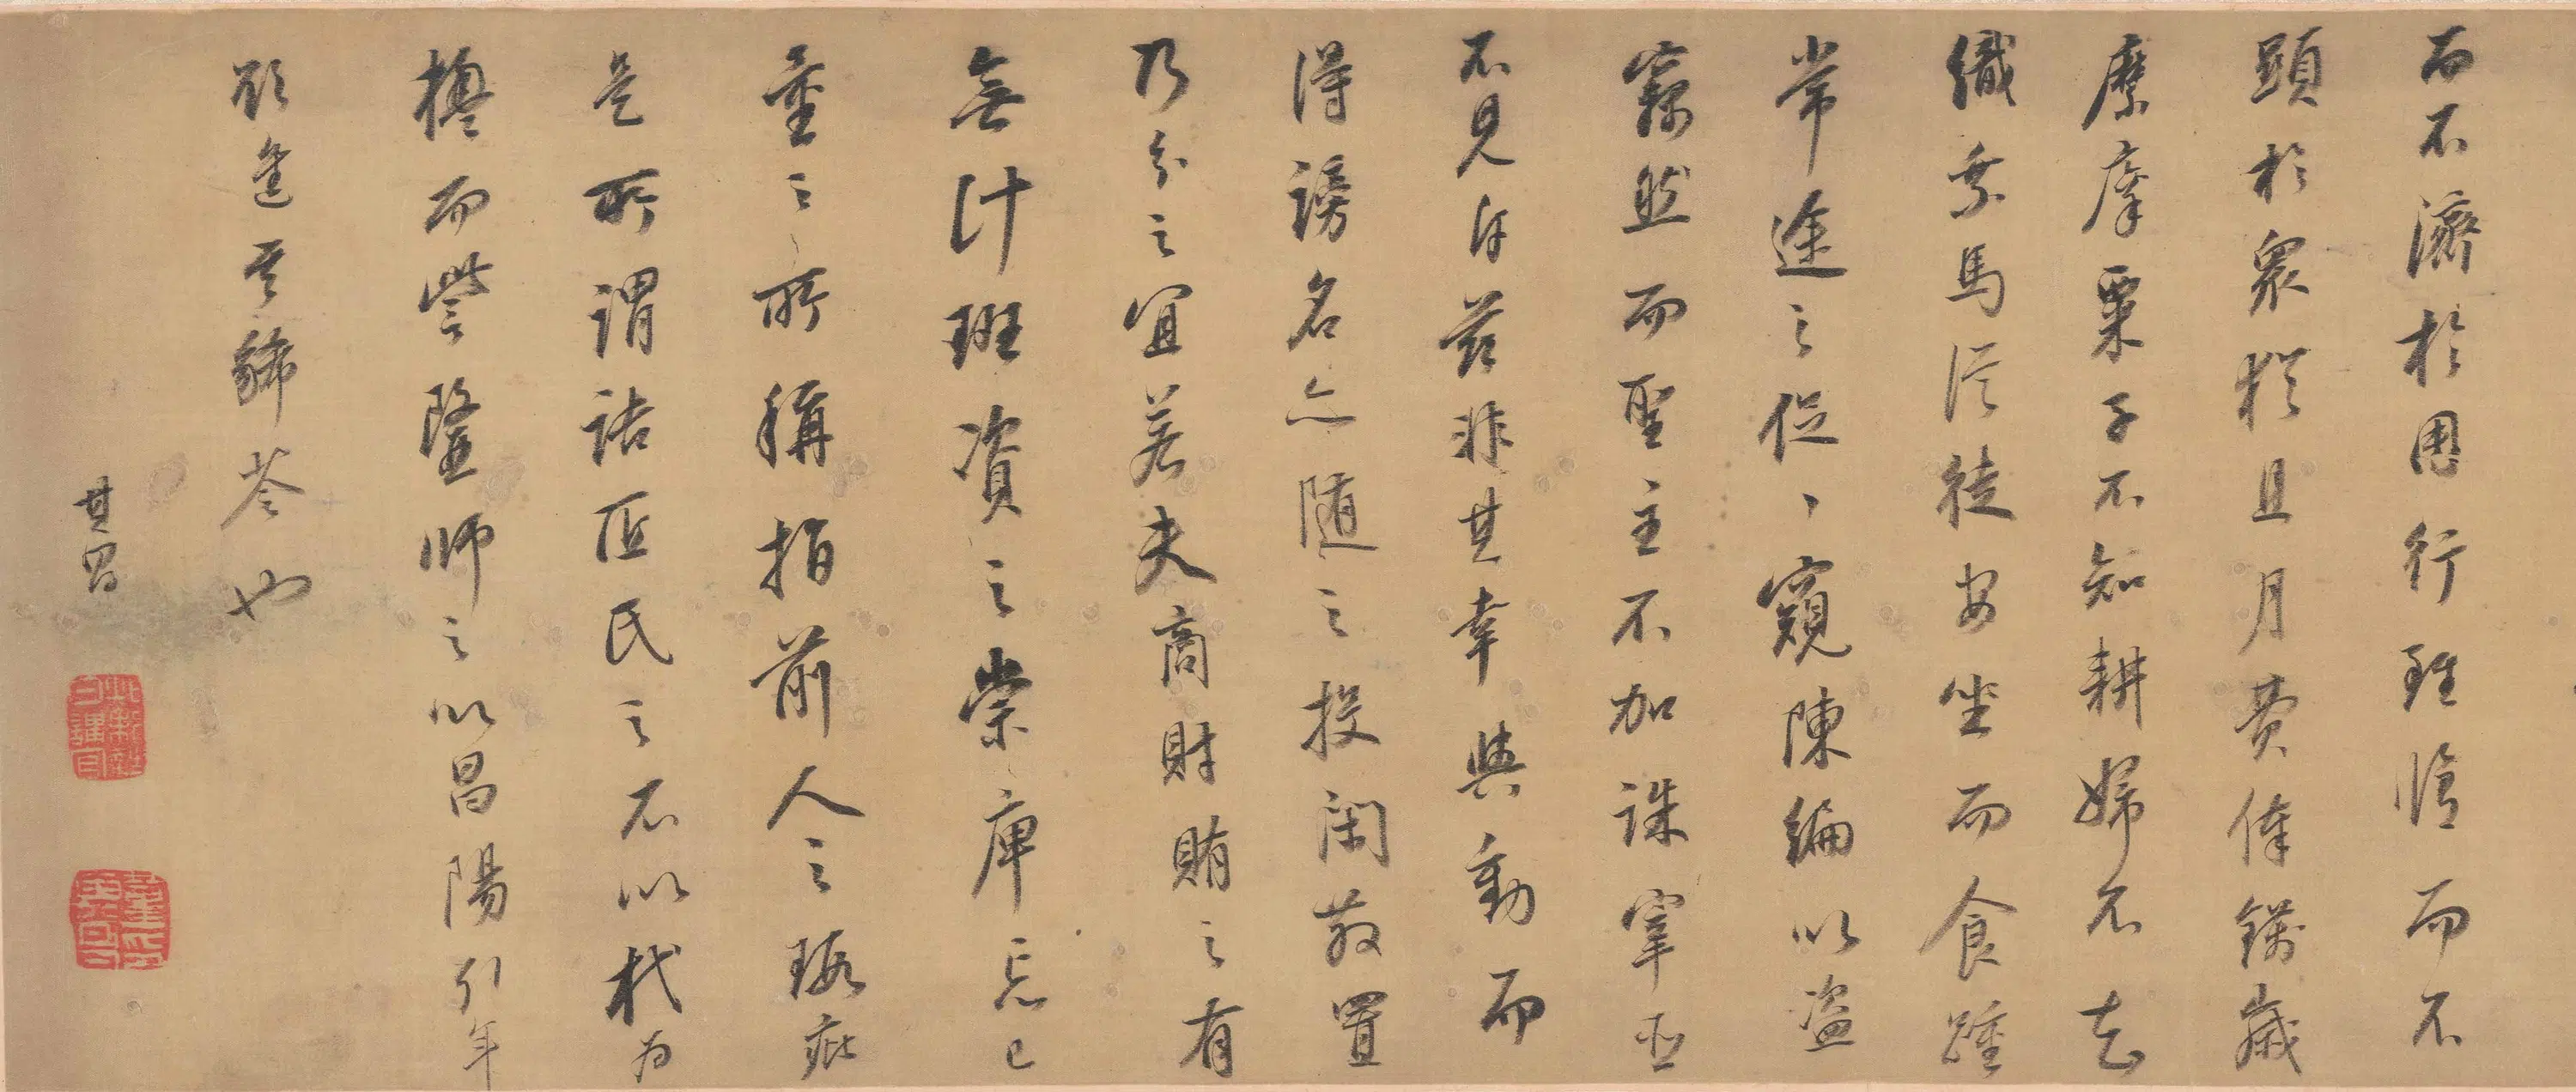 而不濟於用行雖脩而不
顯於衆猶且月費俸錢歲
縻廩粟子不知耕婦不知
織乘馬從徒安坐而食踵
常途之促〻窺陳編以盜
竊然而聖主不加誅宰臣
不見斥茲非其幸與動而
得謗名亦隨之投閑散置
乃分之宜若夫商財賄之有
無計班資之崇庳忘己
量之所稱指前人之瑕疵
是所謂詰匠氏之不以杙為
楹而訾醫師之以昌陽引年
欲進其豨苓也
其昌